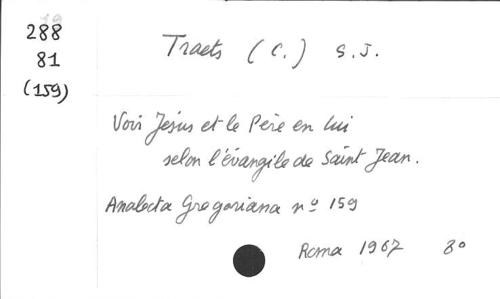 288
81
(159)
Traets (C.) S.J.
Voir Jésus et le Père en lui
selon l'évangile de Saint Jean.
Analecta Gregoriana nº 159
Roma 1967 8º